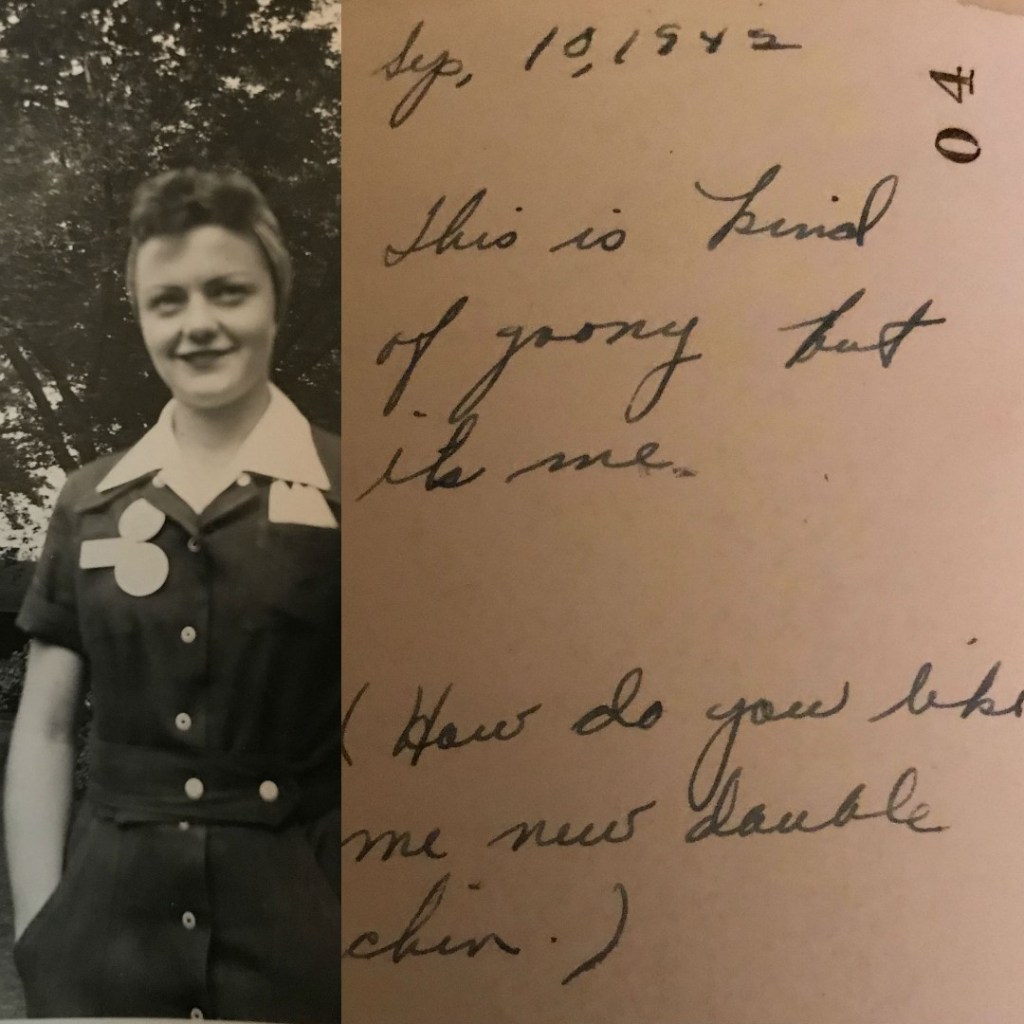 Sep, 10, 1942
04
This is kind
of goony but
its me.
(How do you like
me new double
chin.)